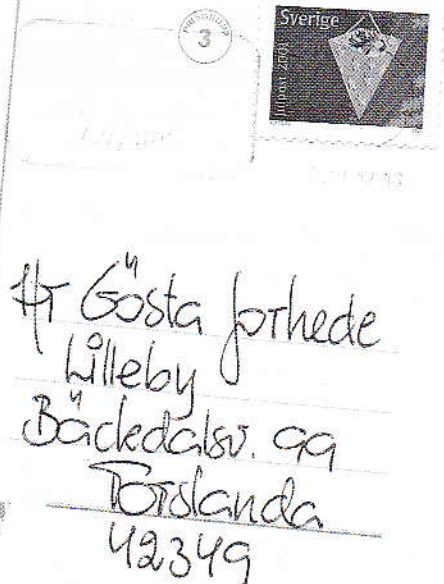 3
Sverige
Julpost 2001
Hr Gösta Jorhede
Lilleby
Bäckedalsv. 99
Torslanda
42349